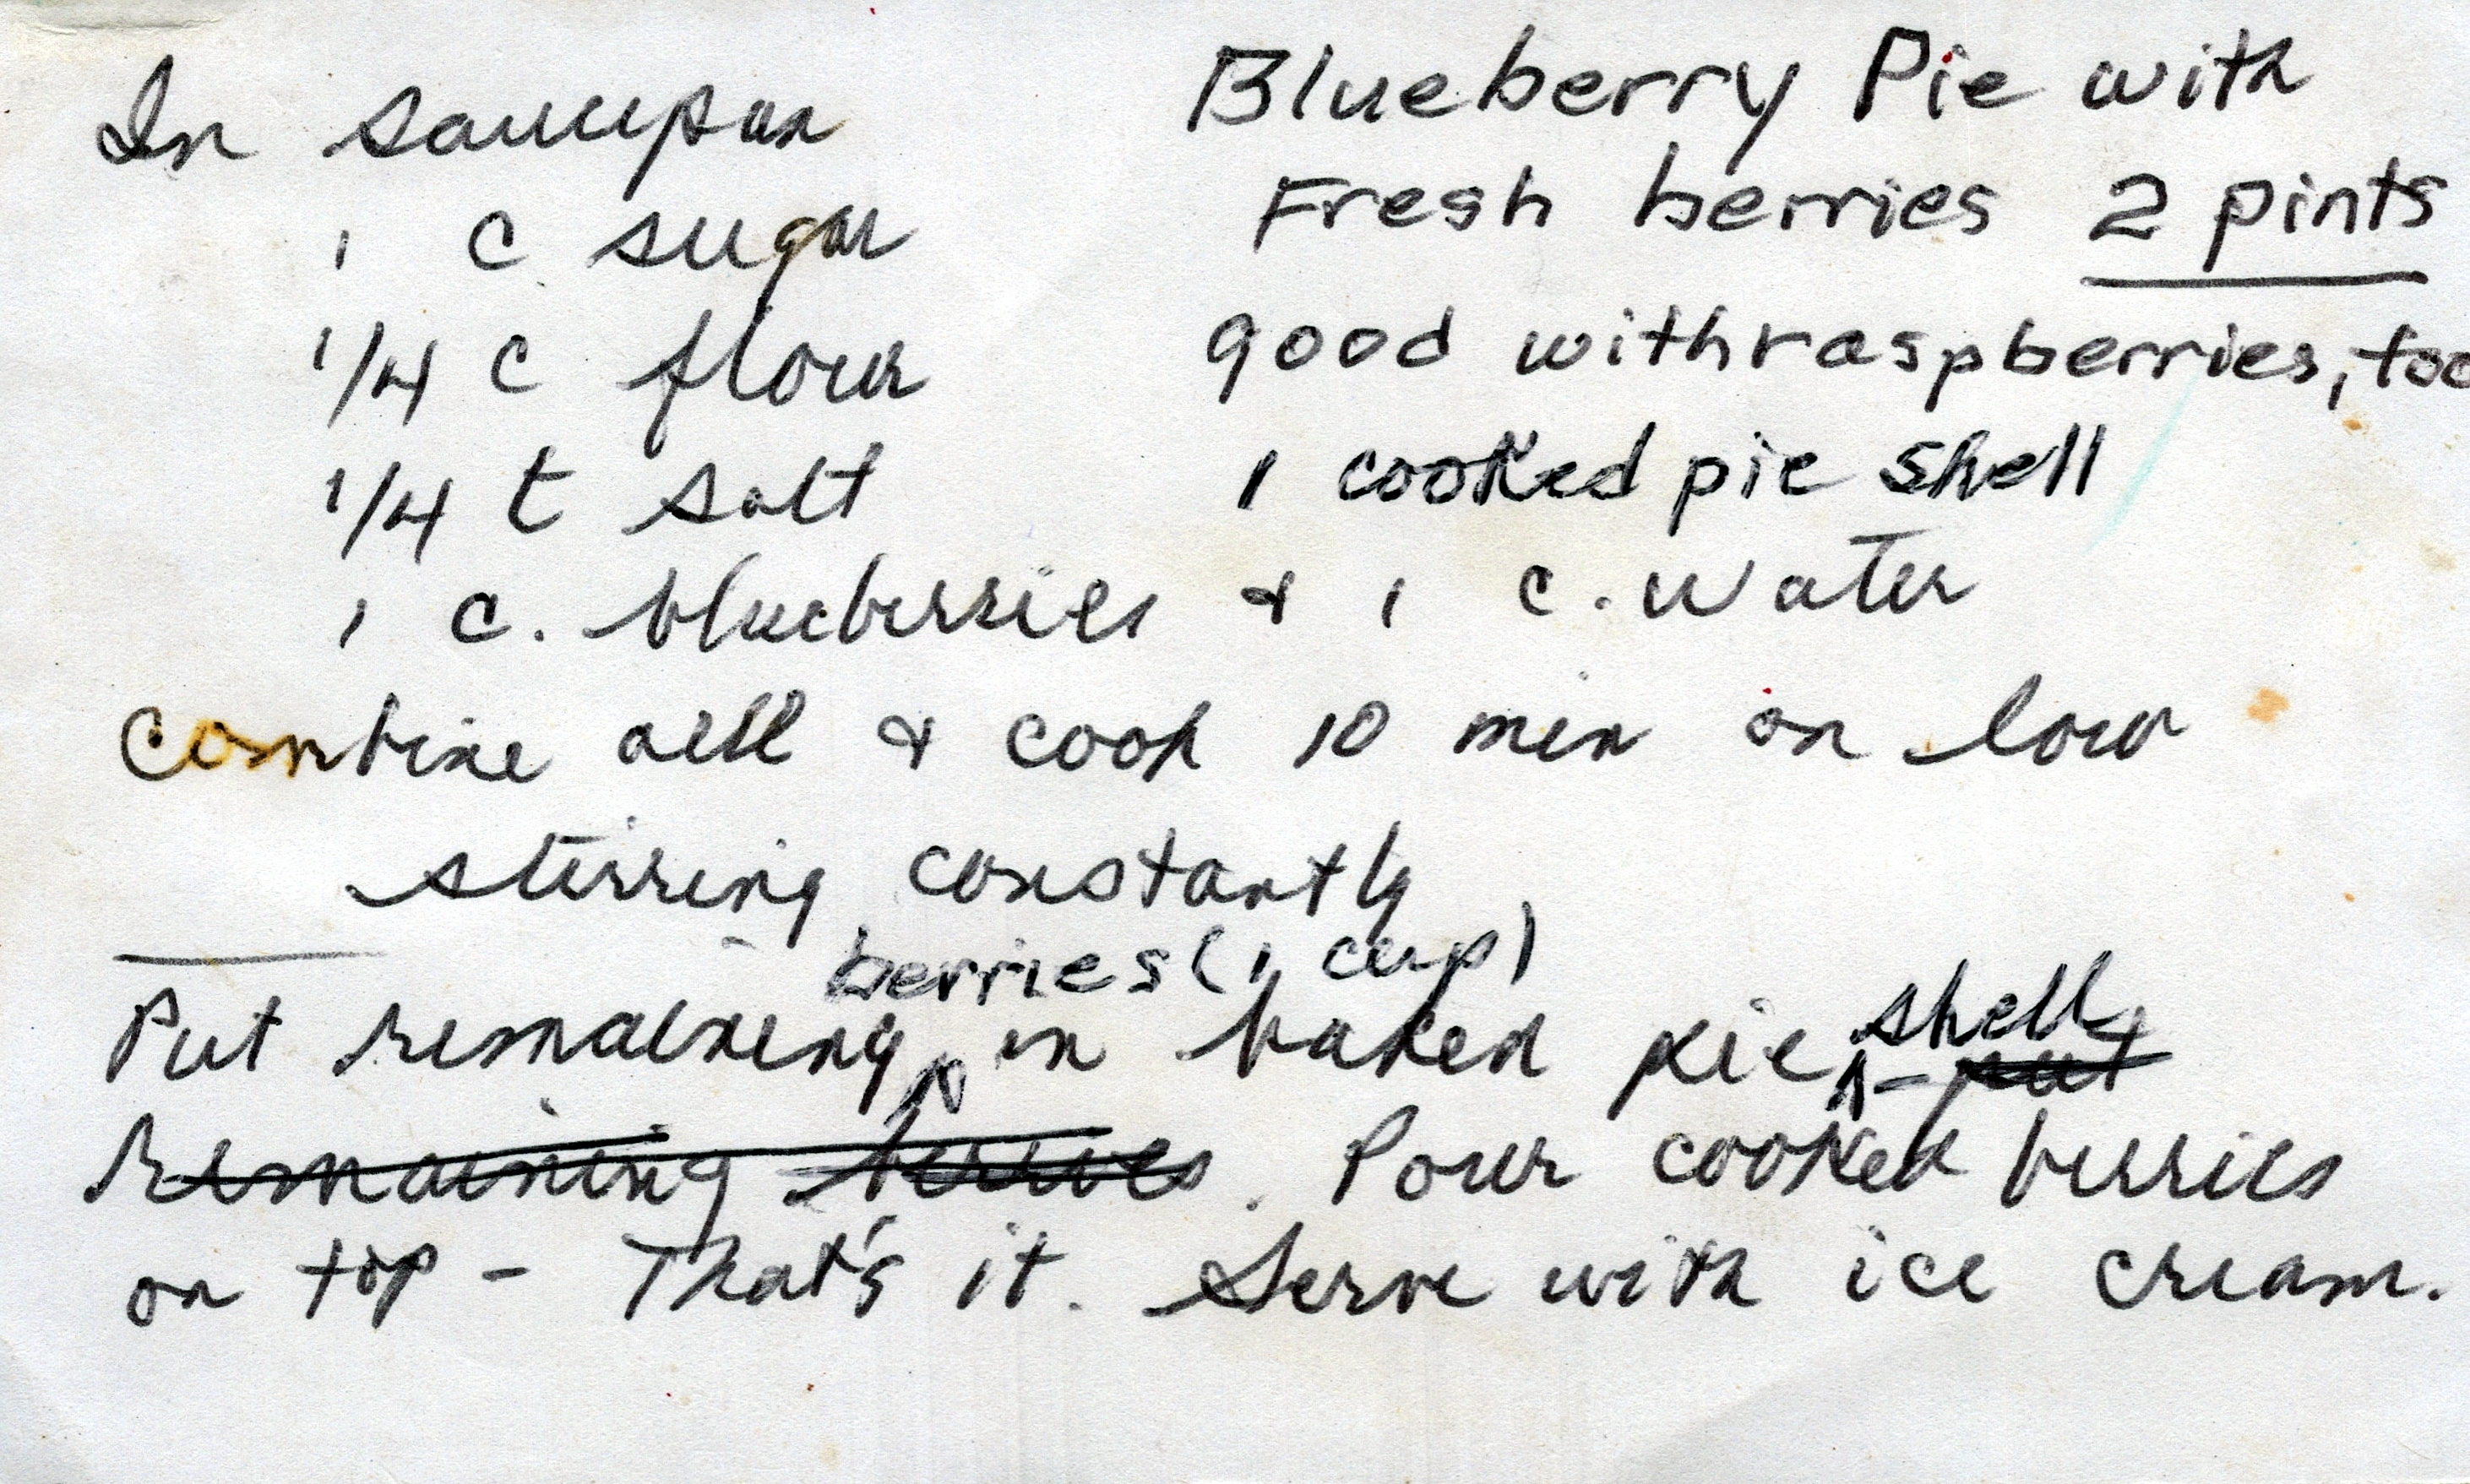 Blueberry Pie with
Fresh berries 2 pints
good with raspberries, too
1 cooked pie shell
In saucepan
1 c sugar
1/4 c flour
1/4 t salt
1 c. blueberries & 1 c. water
Combine all & cook 10 min on low
stirring constantly
berries (1 cup)
Put remaining in baked pie shell - put
remaining berries. Pour cooked berries
on top - That's it. Serve with ice cream.